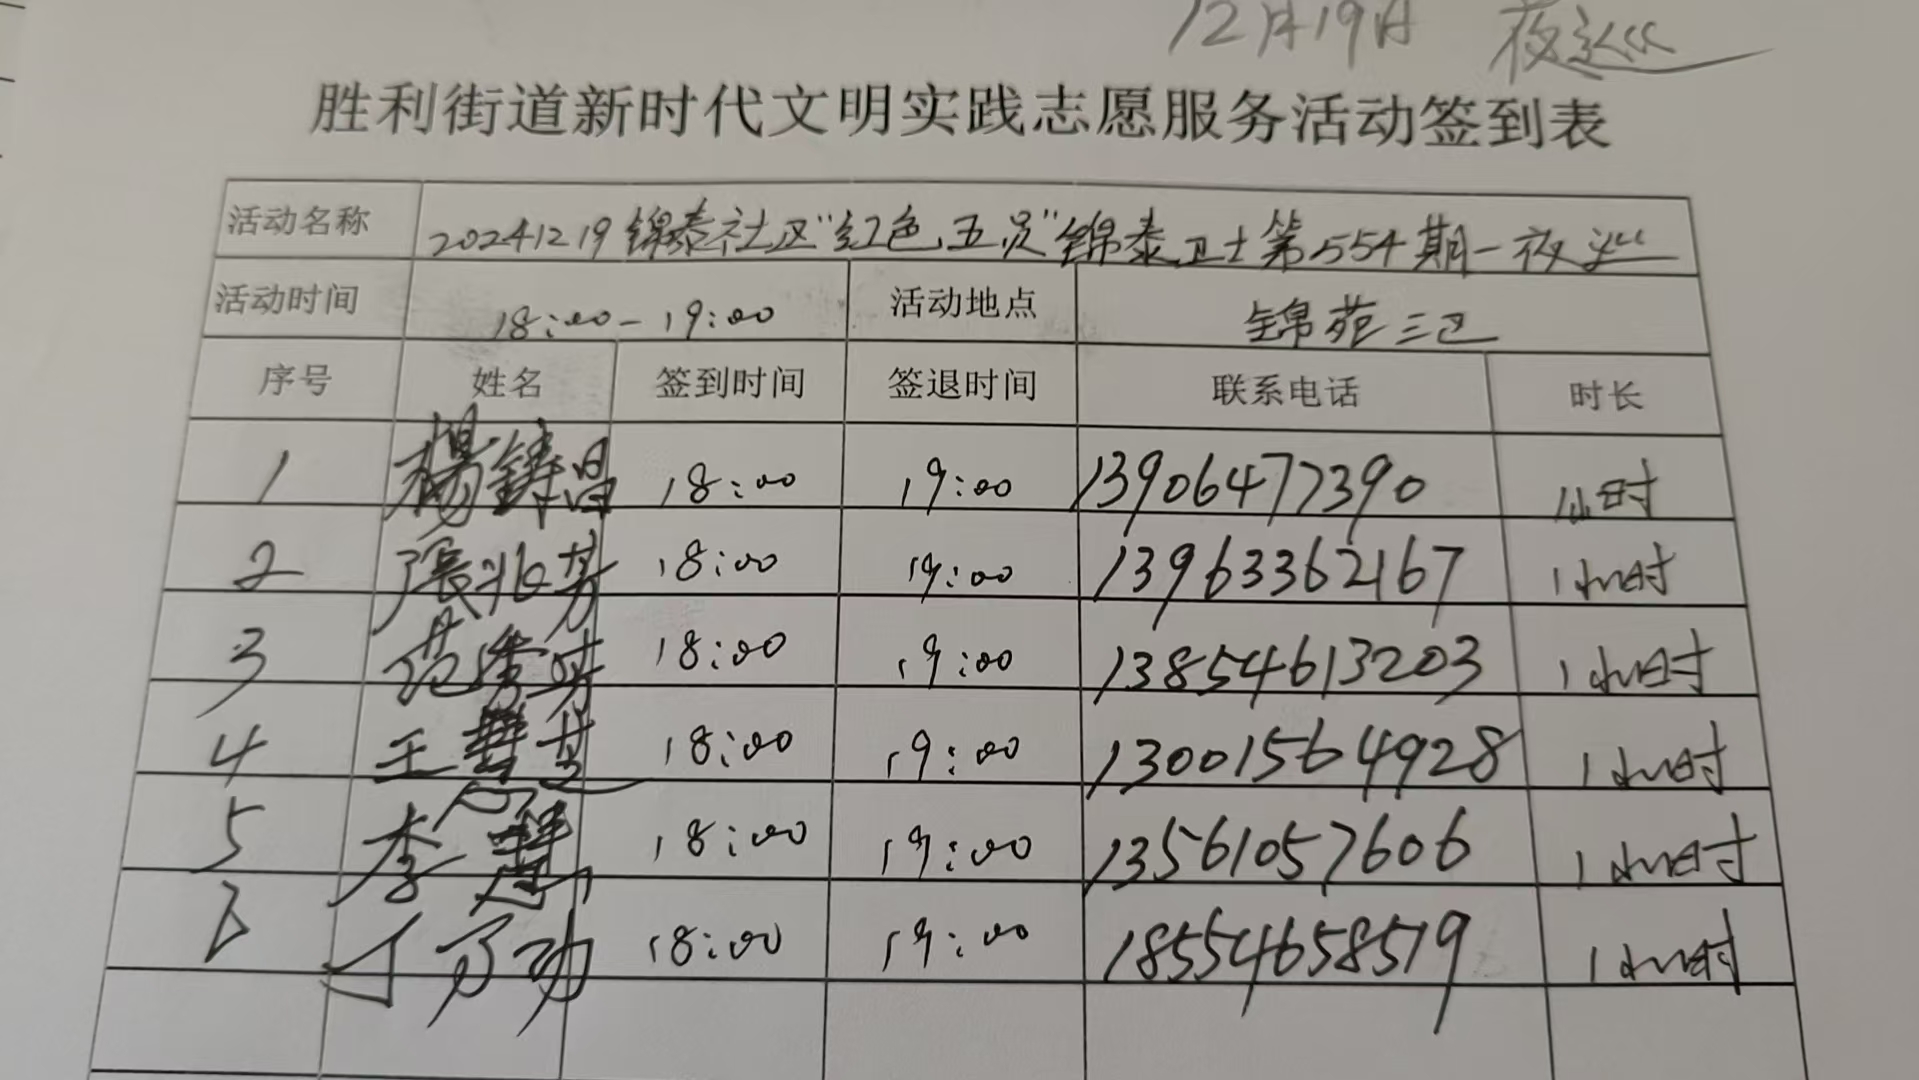 12月19日 夜巡
胜利街道新时代文明实践志愿服务活动签到表
活动名称 20241219锦泰社区"红色五员"锦泰卫士第554期—夜巡
活动时间 18:00-19:00 活动地点 锦苑三区
序号 姓名 签到时间 签退时间 联系电话 时长
1 楊鋳昌 18:00 19:00 13906477390 1小时
2 張兆芳 18:00 19:00 13963362167 1小时
3 范秀 18:00 19:00 13854613203 1小时
4 王慧英 18:00 19:00 13001564928 1小时
5 李慧 18:00 19:00 13561057606 1小时
6 功 18:00 19:00 18554658519 1小时